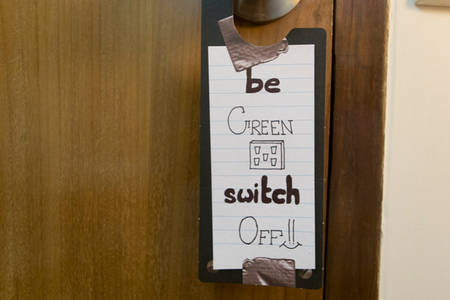 be
GREEN
switch
OFF!!